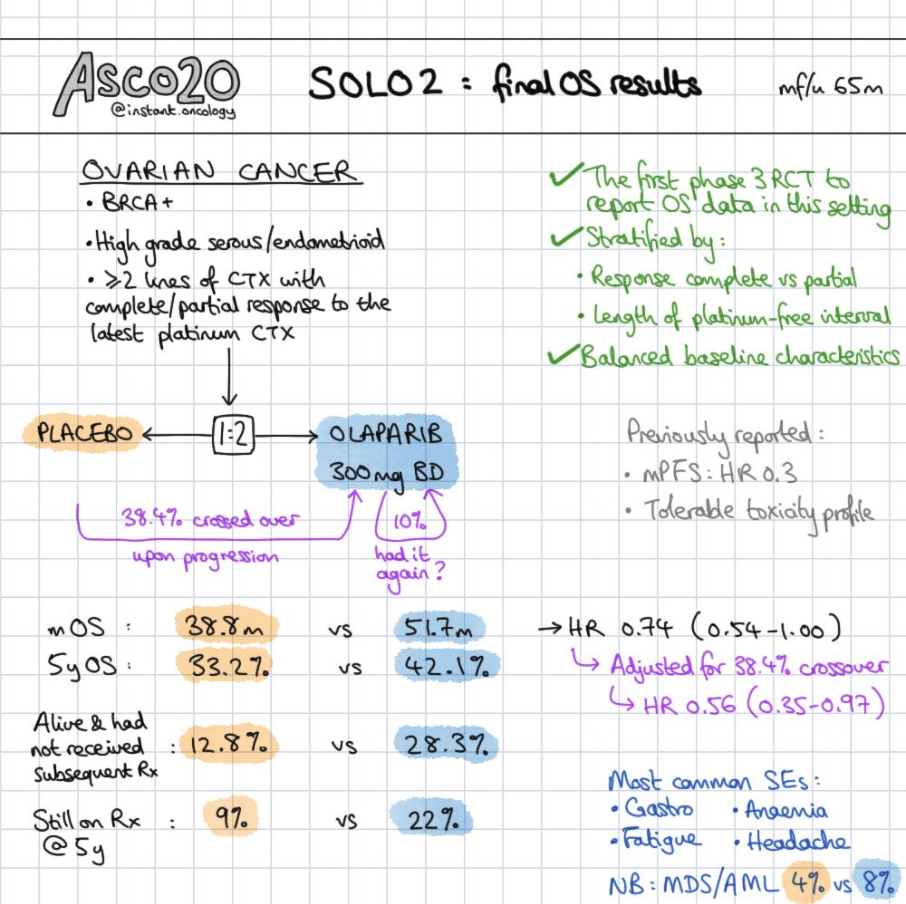 ASCO20
@instant.oncology
SOLO2 : final OS results
mf/u 65m
OVARIAN CANCER
• BRCA+
• High grade serous/endometrioid
• ≥2 lines of CTX with
complete/partial response to the
latest platinum CTX
✓ The first phase 3 RCT to
report OS data in this setting
✓ Stratified by:
• Response complete vs partial
• Length of platinum-free interval
✓ Balanced baseline characteristics
PLACEBO ← 1:2 → OLAPARIB
300mg BD
38.4% crossed over
upon progression
10%
had it
again?
Previously reported:
• mPFS: HR 0.3
• Tolerable toxicity profile
mOS : 38.8m vs 51.7m
5yOS: 33.2% vs 42.1%
→ HR 0.74 (0.54-1.00)
↳ Adjusted for 38.4% crossover
↳ HR 0.56 (0.35-0.97)
Alive & had
not received : 12.8% vs 28.3%
subsequent Rx
Still on Rx : 9% vs 22%
@ 5y
Most common SEs:
• Gastro • Anaemia
• Fatigue • Headache
NB: MDS/AML 4% vs 8%